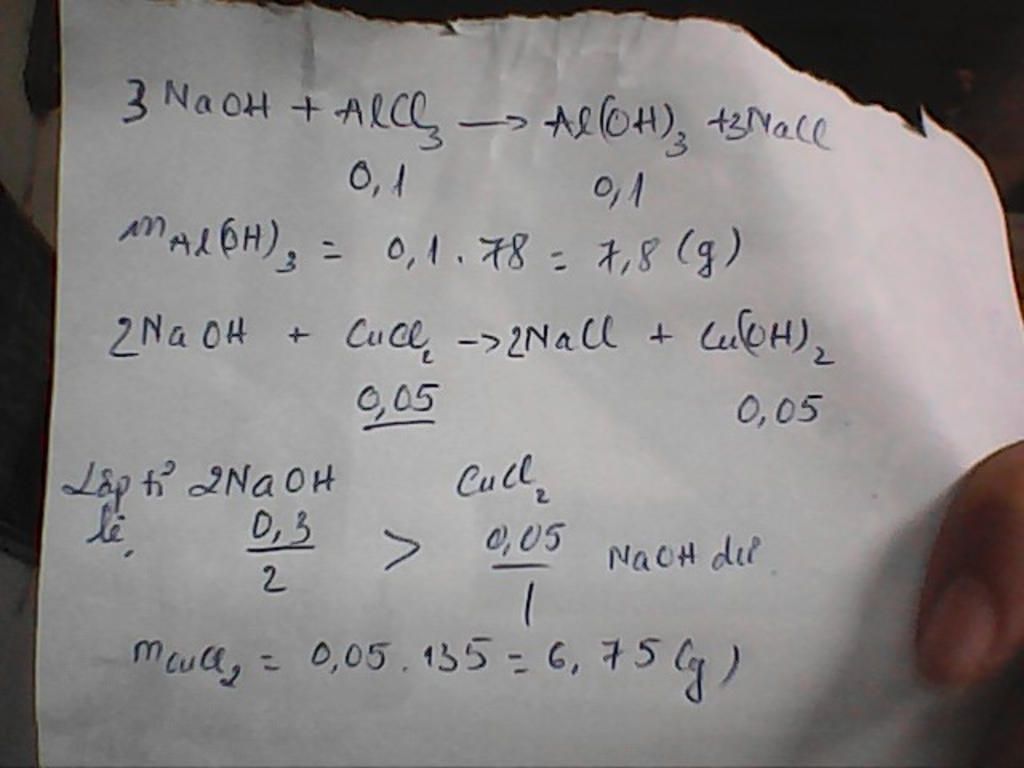 3 NaOH + AlCl₃ → Al(OH)₃ + 3NaCl
0,1 0,1
mAl(OH)₃ = 0,1 . 78 = 7,8 (g)
2NaOH + CuCl₂ → 2NaCl + Cu(OH)₂
0,05 0,05
Lập tỉ 2NaOH CuCl₂
lệ, 0,3/2 > 0,05/1 NaOH dư
mCuCl₂ = 0,05 . 135 = 6,75 (g)